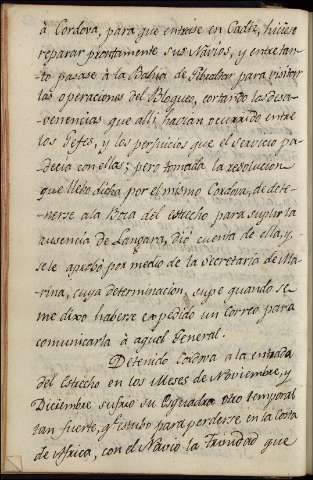 à Cordova, para que entrase en Cadiz, hiciese
reparar prontamente sus Navios, y entretan-
-to pasase à la Bahia de Gibraltar para visitar
las operaciones del Bloqueo, cortando las desa-
-venencias que alli hacian ocurrido entre
los Gefes, y los perjuicios que el servicio pa-
decia con ellas; pero tomada la resolucion
que llebo dicha por el mismo Cordova, de dete-
-nerse a la Boca del estrecho para suplir la
ausencia de Langara, dió cuenta de ella, y
se le aprobó por medio de la Secretaria de Ma-
rina, cuya determinacion, supe quando se
me dixo haberse expedido un Correo para
comunicarla à aquel General.
Detenido Cordova a la entrada
del Estrecho en los Meses de Noviembre, y
Diciembre sufrio su Esquadra otro temporal
tan fuerte, q.e estubo para perderse en la Costa
de Africa, con el Navio la Trinidad que